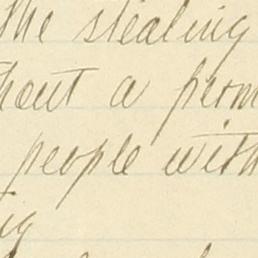 the stealing
hout a perm
people with
ig